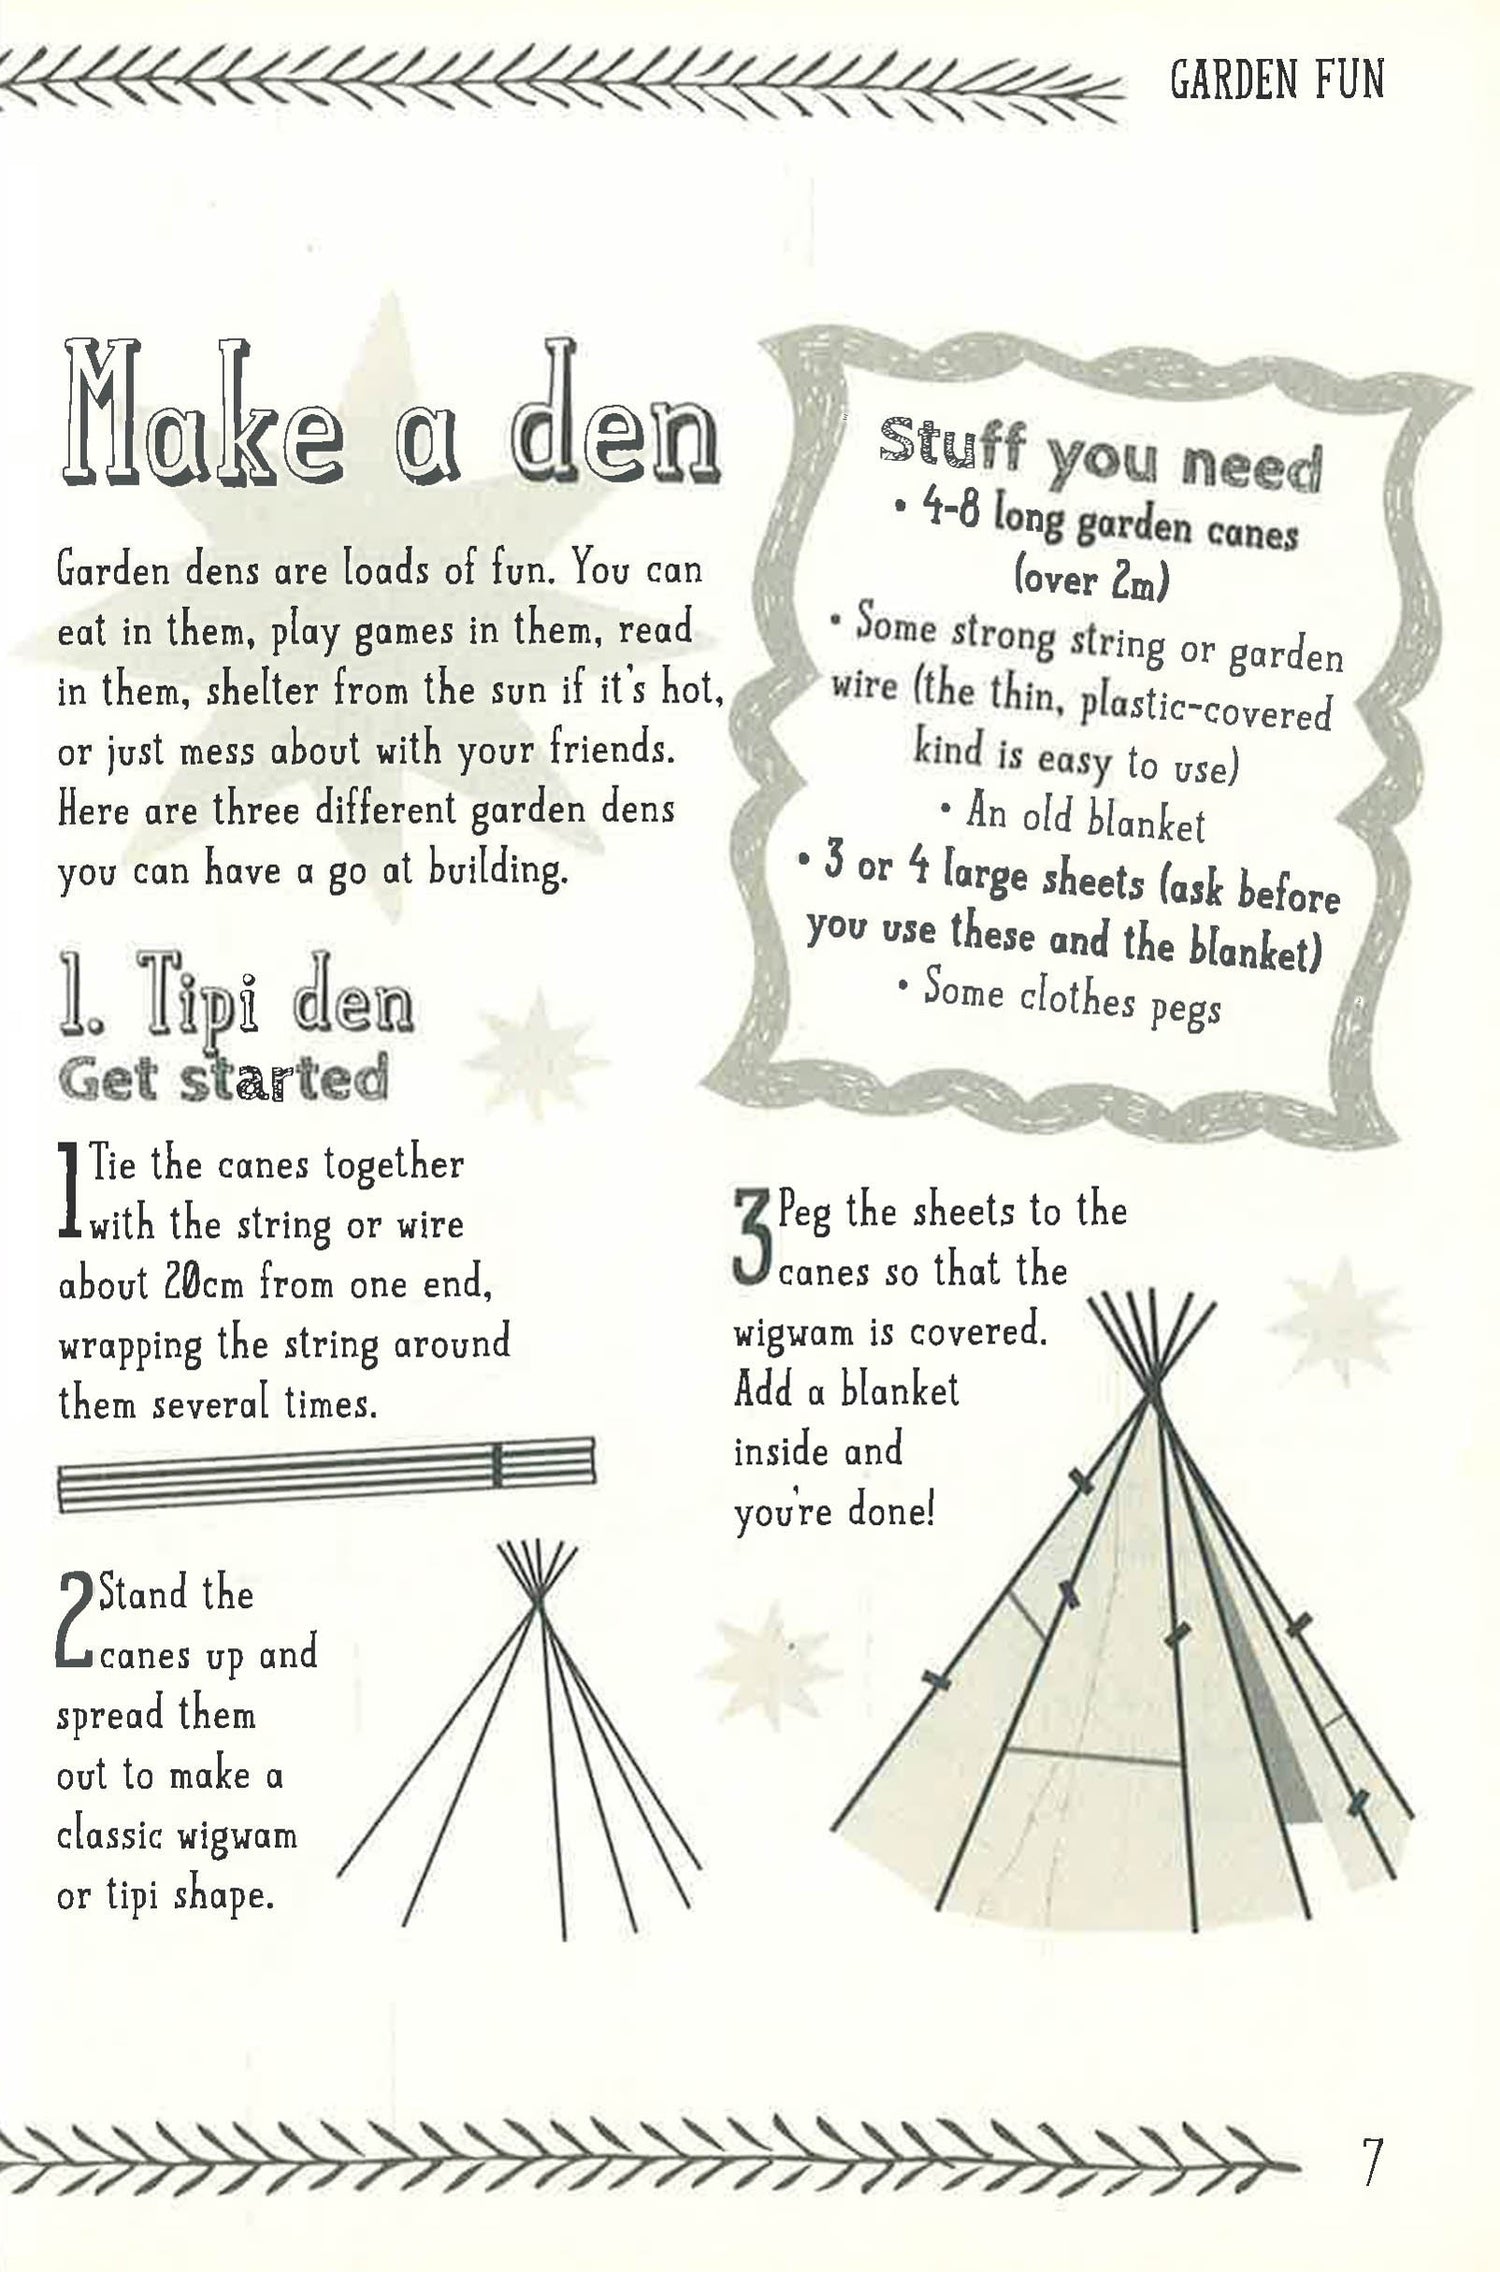 GARDEN FUN
Make a den
Garden dens are loads of fun. You can
eat in them, play games in them, read
in them, shelter from the sun if it's hot,
or just mess about with your friends.
Here are three different garden dens
you can have a go at building.
Stuff you need
• 4-8 long garden canes
(over 2m)
• Some strong string or garden
wire (the thin, plastic-covered
kind is easy to use)
• An old blanket
• 3 or 4 large sheets (ask before
you use these and the blanket)
• Some clothes pegs
1. Tipi den
Get started
1 Tie the canes together
with the string or wire
about 20cm from one end,
wrapping the string around
them several times.
2 Stand the
canes up and
spread them
out to make a
classic wigwam
or tipi shape.
3 Peg the sheets to the
canes so that the
wigwam is covered.
Add a blanket
inside and
you're done!
7